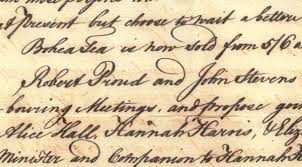 present but choose to wait a better
Bohea Tea is now sold from 5/6 a
Robert Proud and John Stevens
bouring Meetings, and propose go
Alice Hall, Hannah Harris, & Eliz
Minister and Companion to Hannah